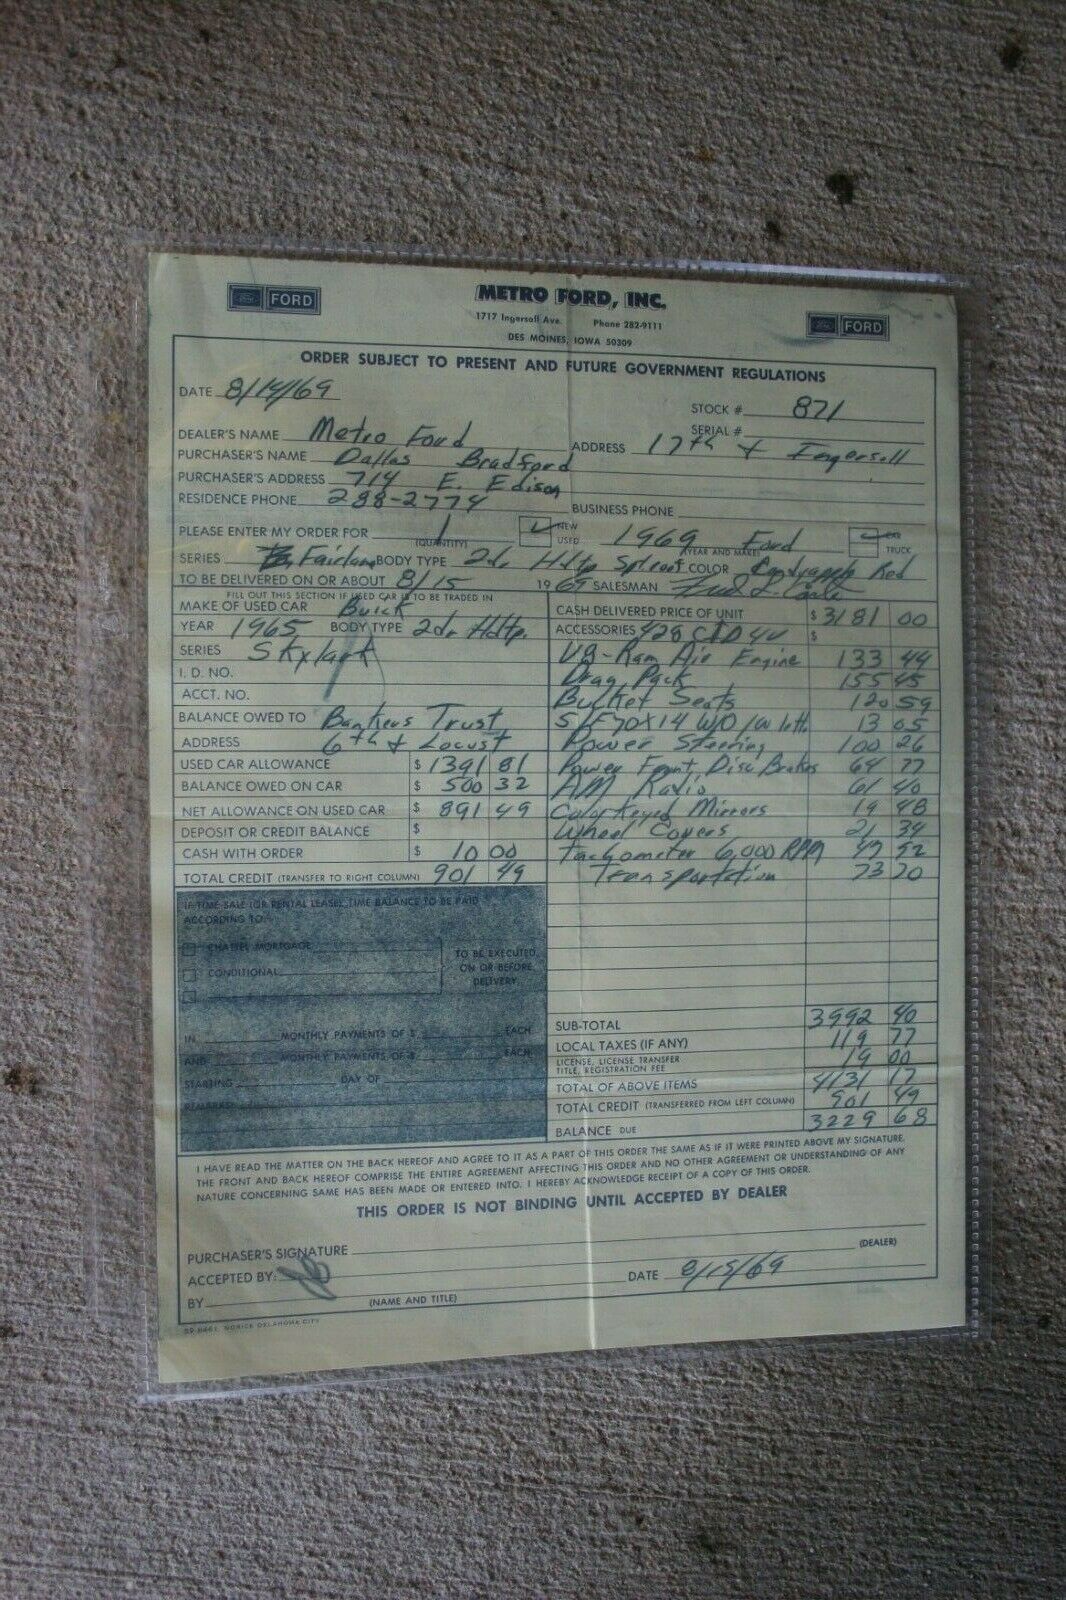 FORD
METRO FORD, INC.
1717 Ingersoll Ave. Phone 282-9111
DES MOINES, IOWA 50309
Ford FORD
ORDER SUBJECT TO PRESENT AND FUTURE GOVERNMENT REGULATIONS
DATE 8/14/69
STOCK # 871
SERIAL #
DEALER'S NAME Metro Ford ADDRESS 17th & Ingersoll
PURCHASER'S NAME Dallas Bradford
PURCHASER'S ADDRESS 714 E. Edison
RESIDENCE PHONE 288-2774 BUSINESS PHONE
PLEASE ENTER MY ORDER FOR 1 (QUANTITY) NEW USED 1969 Ford (YEAR AND MAKE) CAR TRUCK
SERIES Fairlane BODY TYPE 2dr Hdtp Sptroof COLOR Candyapple Red
TO BE DELIVERED ON OR ABOUT 8/15 1969 SALESMAN
FILL OUT THIS SECTION IF USED CAR IS TO BE TRADED IN
MAKE OF USED CAR Buick
YEAR 1965 BODY TYPE 2dr Hdtp.
SERIES Skylark
I. D. NO.
ACCT. NO.
BALANCE OWED TO Bankers Trust
ADDRESS 6th & Locust
USED CAR ALLOWANCE $ 1391 81
BALANCE OWED ON CAR $ 500 32
NET ALLOWANCE ON USED CAR $ 891 49
DEPOSIT OR CREDIT BALANCE $
CASH WITH ORDER $ 10 00
TOTAL CREDIT (TRANSFER TO RIGHT COLUMN) 901 49
IF TIME SALE (OR RENTAL LEASE), TIME BALANCE TO BE PAID
ACCORDING TO:
CHATTEL MORTGAGE
CONDITIONAL
TO BE EXECUTED
ON OR BEFORE
DELIVERY.
IN MONTHLY PAYMENTS OF $ EACH
AND MONTHLY PAYMENTS OF $ EACH
STARTING DAY OF
REMARKS:
CASH DELIVERED PRICE OF UNIT $ 3181 00
ACCESSORIES 428 CID 4V $
V8-Ram Air Engine 133 44
Drag Pack 155 45
Bucket Seats 120 59
5/F70X14 W/O 13 05
Power Steering 100 26
Power Front Disc Brakes 64 77
AM Radio 61 40
Color Keyed Mirrors 19 48
Wheel Covers 21 34
Tachometer 6,000 RPM 47 92
Transportation 73 70
SUB-TOTAL 3992 40
LOCAL TAXES (IF ANY) 119 77
LICENSE, LICENSE TRANSFER
TITLE, REGISTRATION FEE 19 00
TOTAL OF ABOVE ITEMS 4131 17
TOTAL CREDIT (TRANSFERRED FROM LEFT COLUMN) 901 49
BALANCE DUE 3229 68
I HAVE READ THE MATTER ON THE BACK HEREOF AND AGREE TO IT AS A PART OF THIS ORDER THE SAME AS IF IT WERE PRINTED ABOVE MY SIGNATURE.
THE FRONT AND BACK HEREOF COMPRISE THE ENTIRE AGREEMENT AFFECTING THIS ORDER AND NO OTHER AGREEMENT OR UNDERSTANDING OF ANY
NATURE CONCERNING SAME HAS BEEN MADE OR ENTERED INTO. I HEREBY ACKNOWLEDGE RECEIPT OF A COPY OF THIS ORDER.
THIS ORDER IS NOT BINDING UNTIL ACCEPTED BY DEALER
PURCHASER'S SIGNATURE
(DEALER)
ACCEPTED BY: DATE 8/15/69
BY (NAME AND TITLE)
NORICK OKLAHOMA CITY